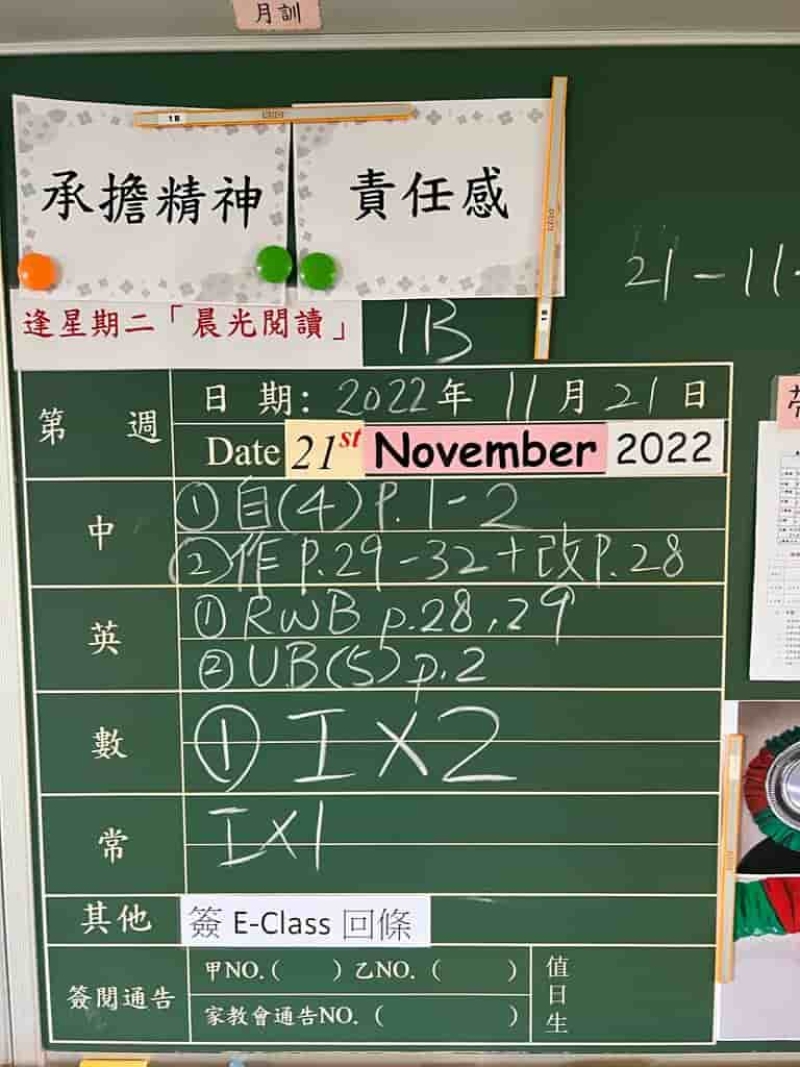 月訓
承擔精神
責任感
21-11-
逢星期二「晨光閱讀」
1B
第 週
日 期: 2022年 11月21日
Date 21st November 2022
中
①自(4) P.1-2
②作 P.29-32+改P.28
英
①RWB p.28,29
②UB(5) p.2
數
①工×2
常
工×1
其他
簽 E-Class 回條
簽閱通告
甲NO.( ) 乙NO. ( )
家教會通告NO. ( )
值日生